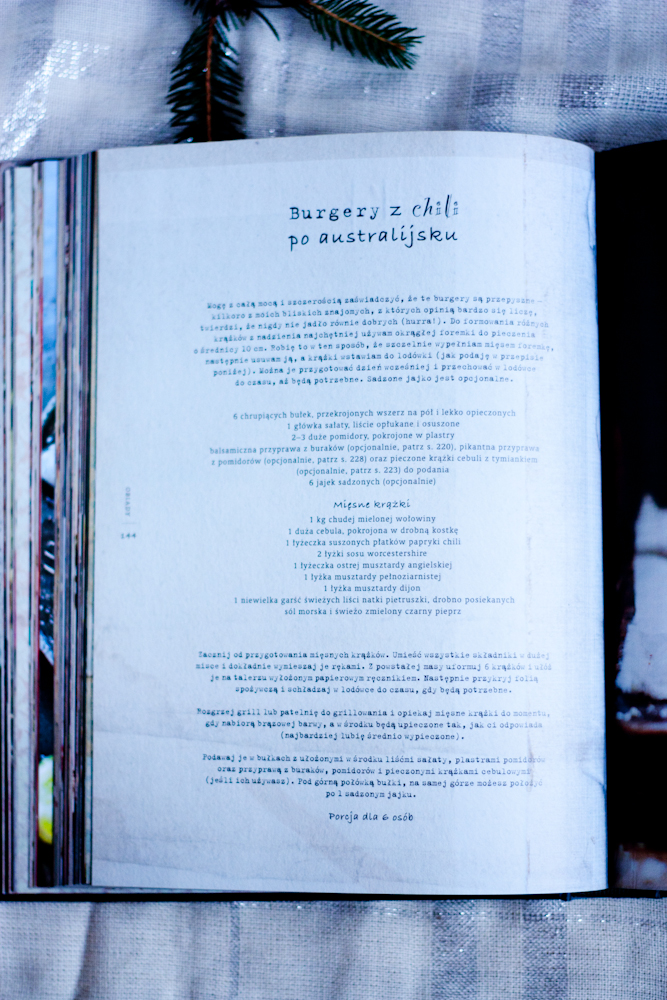 Burgery z chili
po australijsku
Mogę z całą mocą i szczerością zaświadczyć, że te burgery są przepyszne –
kilkoro z moich bliskich znajomych, z których opinią bardzo się liczę,
twierdzi, że nigdy nie jadło równie dobrych (hurra!). Do formowania różnych
krążków z nadzienia najchętniej używam okrągłej foremki do pieczenia
o średnicy 10 cm. Robię to w ten sposób, że szczelnie wypełniam mięsem foremkę,
następnie usuwam ją, a krążki wstawiam do lodówki (jak podaję w przepisie
poniżej). Można je przygotować dzień wcześniej i przechować w lodówce
do czasu, aż będą potrzebne. Sadzone jajko jest opcjonalne.
6 chrupiących bułek, przekrojonych wszerz na pół i lekko opieczonych
1 główka sałaty, liście opłukane i osuszone
2–3 duże pomidory, pokrojone w plastry
balsamiczna przyprawa z buraków (opcjonalnie, patrz s. 220), pikantna przyprawa
z pomidorów (opcjonalnie, patrz s. 228) oraz pieczone krążki cebuli z tymiankiem
(opcjonalnie, patrz s. 223) do podania
6 jajek sadzonych (opcjonalnie)
Mięsne krążki
1 kg chudej mielonej wołowiny
1 duża cebula, pokrojona w drobną kostkę
1 łyżeczka suszonych płatków papryki chili
2 łyżki sosu worcestershire
1 łyżeczka ostrej musztardy angielskiej
1 łyżka musztardy pełnoziarnistej
1 łyżka musztardy dijon
1 niewielka garść świeżych liści natki pietruszki, drobno posiekanych
sól morska i świeżo zmielony czarny pieprz
Zacznij od przygotowania mięsnych krążków. Umieść wszystkie składniki w dużej
misce i dokładnie wymieszaj je rękami. Z powstałej masy uformuj 6 krążków i ułóż
je na talerzu wyłożonym papierowym ręcznikiem. Następnie przykryj folią
spożywczą i schładzaj w lodówce do czasu, gdy będą potrzebne.
Rozgrzej grill lub patelnię do grillowania i opiekaj mięsne krążki do momentu,
gdy nabiorą brązowej barwy, a w środku będą upieczone tak, jak ci odpowiada
(najbardziej lubię średnio wypieczone).
Podawaj je w bułkach z ułożonymi w środku liśćmi sałaty, plastrami pomidorów
oraz przyprawą z buraków, pomidorów i pieczonymi krążkami cebulowymi
(jeśli ich używasz). Pod górną połówką bułki, na samej górze możesz położyć
po 1 sadzonym jajku.
Porcja dla 6 osób
144